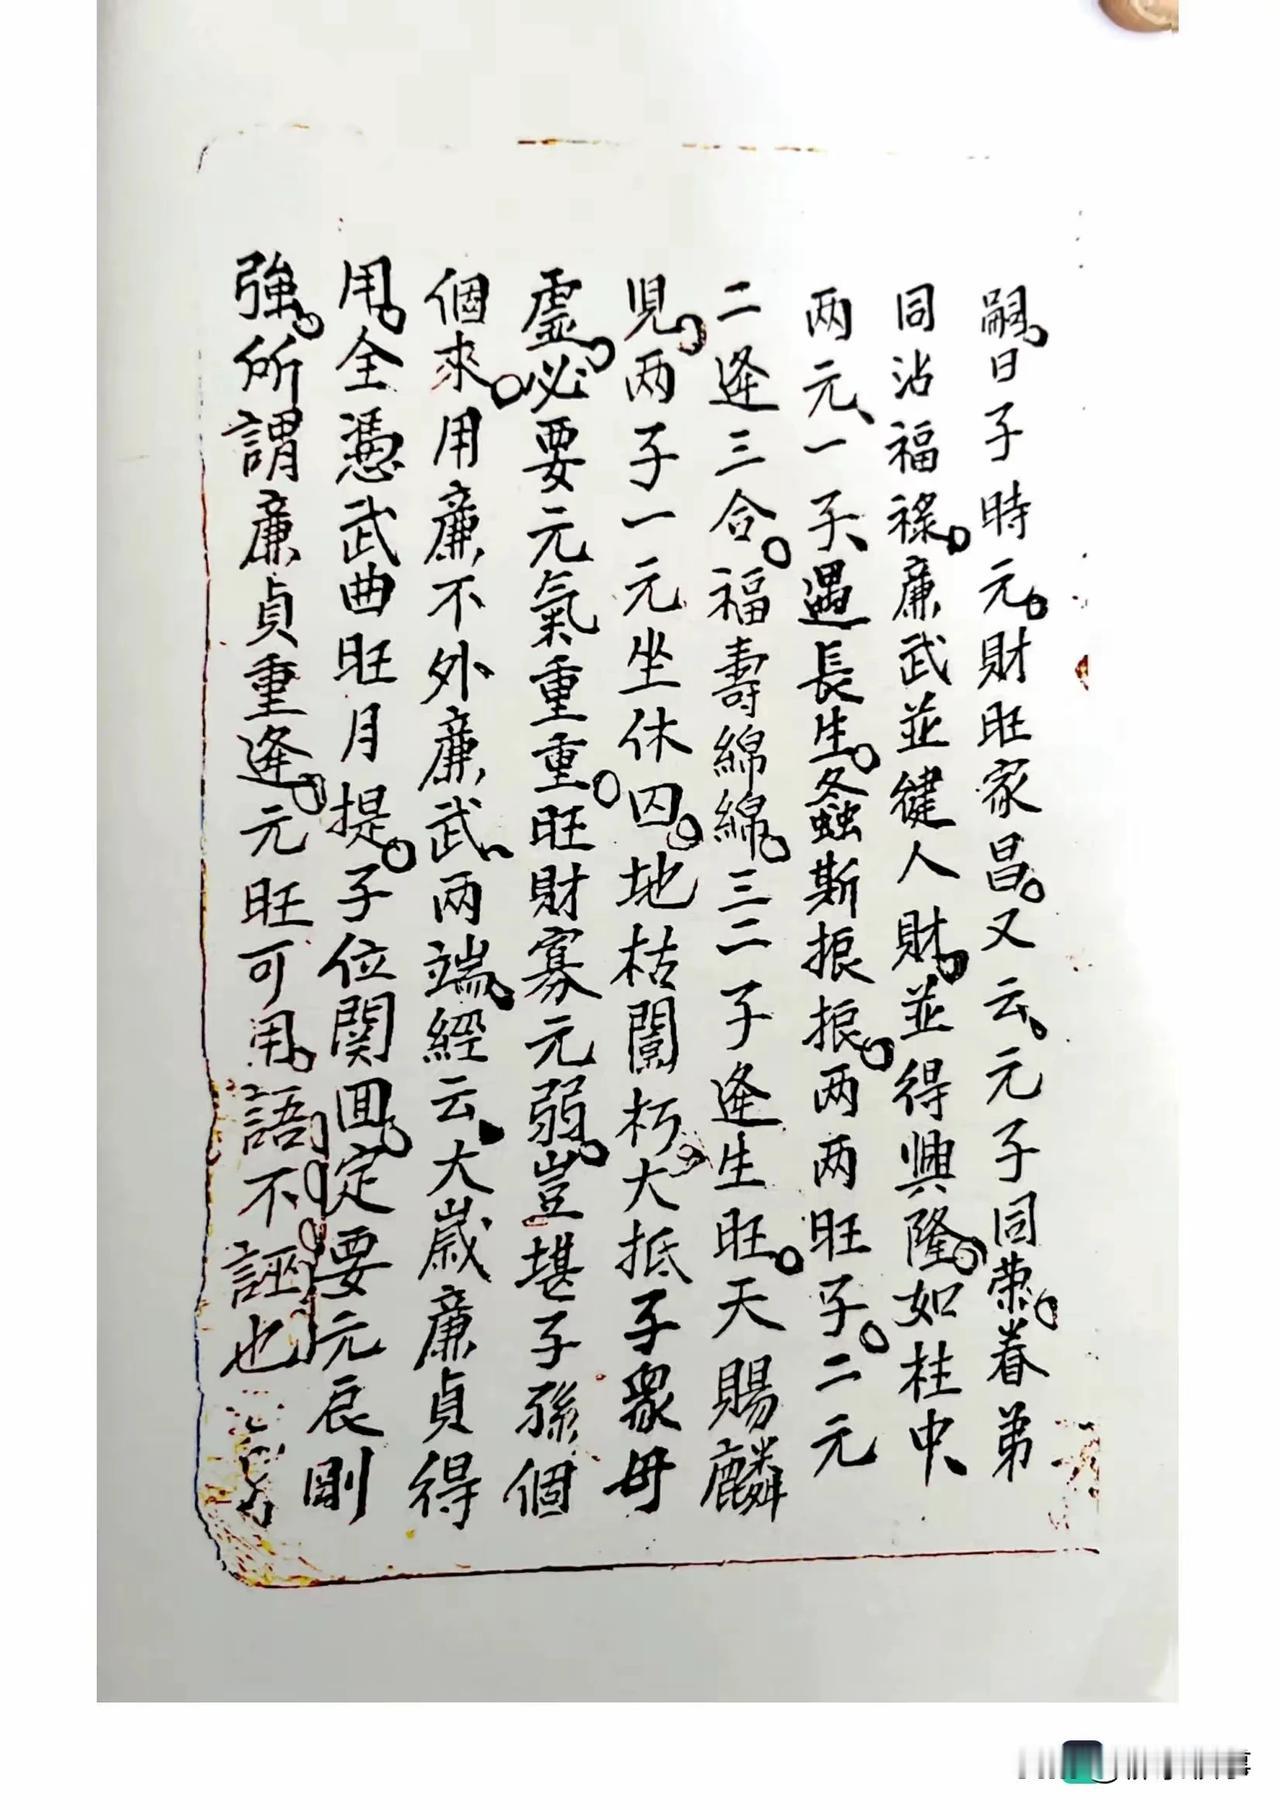 嗣。日子時元。財旺家昌。又云。元子同荣。眷弟
同沾福祿。廉武並健人財。並得興隆。如柱中、
两元、一子、遇長生。螽斯振振。两两旺子。二元
二逢三合。福壽綿綿。三二子逢生旺。天賜麟
児。两子一元坐休囚。地枯閬朽。大抵子衆母
虛。必要元氣重重。旺財寡元弱。豈堪子孫個
個來。用廉不外廉武、两端。經云、大歲廉貞得
用。全憑武曲旺月提。子位関囬。定要元辰剛
強。所謂廉貞重逢。元旺可用。語不誣也